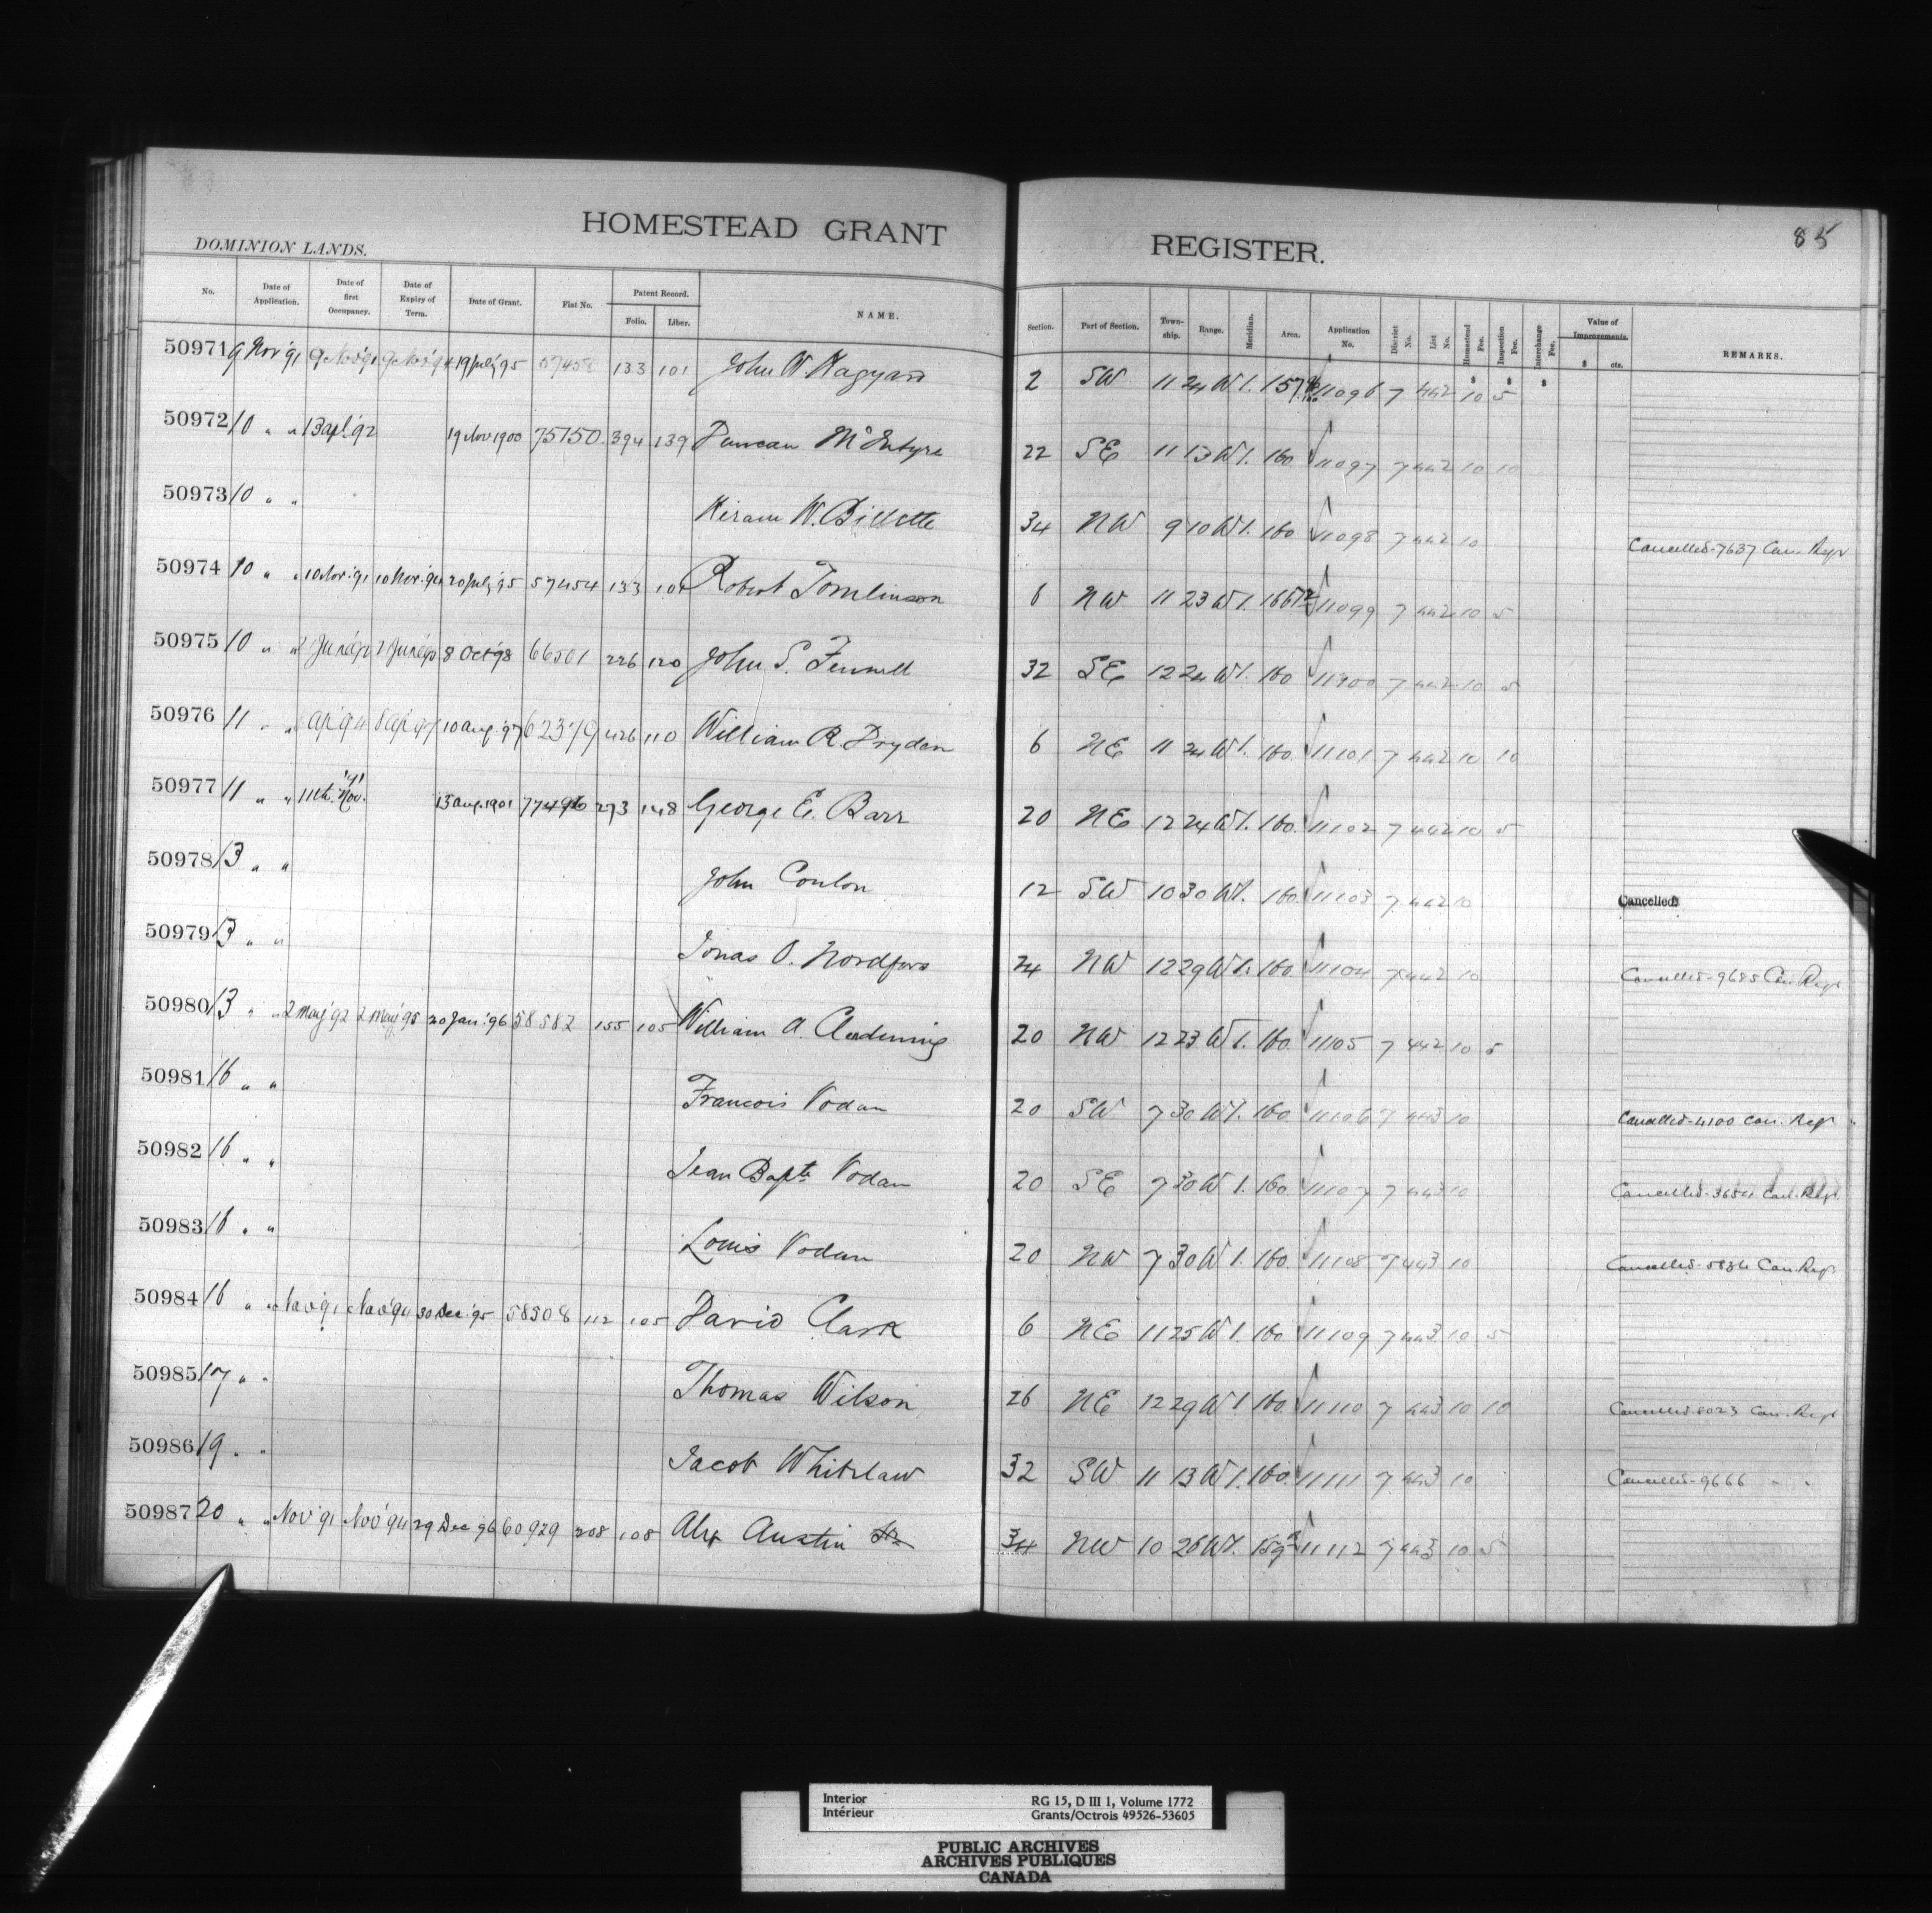 HOMESTEAD GRANT REGISTER.
85
DOMINION LANDS.
No. Date of Application. Date of first Occupancy. Date of Expiry of Term. Date of Grant. Fiat No. Patent Record. Folio. Liber. NAME. Section. Part of Section. Township. Range. Meridian. Area. Application No. District No. List No. Homestead Fee. Inspection Fee. Interchange Fee. Value of Improvements. $ cts. REMARKS.
50971 9 Nov '91 9 Nov '91 9 Nov '94 19 July '95 57458 133 101 John W. Hagyard 2 SW 11 24 W 1. 11096 7 442 10 5
50972 10 " " 13 apl '92 19 Nov 1900 75750 394 139 Duncan McIntyre 22 SE 11 13 W 1. 160 11097 7 442 10 10
50973 10 " " Hiram W. Billette 34 NW 9 10 W 1. 160 11098 7 442 10 Cancelled-7637 Can. Regr
50974 10 " " 10 Nov. '91 10 Nov. '94 20 July '95 57454 133 101 Robert Tomlinson 6 NW 11 23 W 1. 11099 7 442 10 5
50975 10 " " 8 Oct '98 66501 226 120 John S. Fennell 32 SE 12 24 W 1. 160 11100 7 442 10 5
50976 11 " " 10 aug. '97 62379 426 110 William R. Dryden 6 NE 11 24 W 1. 160 11101 7 442 10 10
50977 11 " " 11th Nov. '91 13 aug. 1901 77496 273 148 George E. Barr 20 NE 12 24 W 1. 160 11102 7 442 10 5
50978 13 " " John Conlon 12 SW 10 30 W 1. 160 11103 7 442 10 Cancelled
50979 13 " " Jonas O. 24 NW 12 29 W 1. 160 11104 7 442 10 Cancelled-9685 Can. Regr
50980 13 " " 2 May '92 2 May '95 20 Jan. '96 58582 155 105 William A. Clendening 20 NW 12 23 W 1. 160 11105 7 442 10 5
50981 16 " " Francois Vodan 20 SW 7 30 W 1. 160 11106 7 443 10 Cancelled-4100 Can. Regr "
50982 16 " " Jean Bapte Vodan 20 SE 7 30 W 1. 160 11107 7 443 10 Cancelled-3654 Can. Regr.
50983 16 " " Louis Vodan 20 NW 7 30 W 1. 160 11108 7 443 10 Cancelled-5836 Can. Regr.
50984 16 " " Nov '91 Nov '94 30 Dec. '95 58508 112 105 David Clark 6 NE 11 25 W 1. 160 11109 7 443 10 5
50985 17 " " Thomas Wilson 26 NE 12 29 W 1. 160 11110 7 443 10 10 Cancelled-8023 Can. Regr
50986 19 " " Jacob Whitelaw 32 SW 11 13 W 1. 160 11111 7 443 10 Cancelled-9666 " "
50987 20 " " Nov '91 Nov '94 29 Dec '96 60929 208 108 Alex Austin Sr 34 NW 10 26 W 1. 11112 7 443 10 5
Interior RG 15, D III 1, Volume 1772
Intérieur Grants/Octrois 49526-53605
PUBLIC ARCHIVES
ARCHIVES PUBLIQUES
CANADA